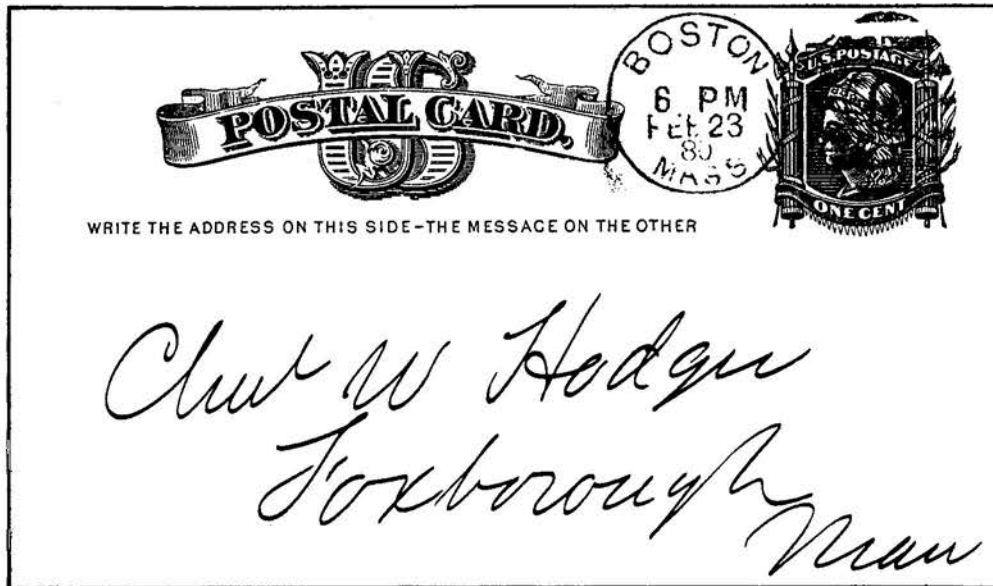 US
POSTAL CARD,
BOSTON
6 PM
FEB 23
80
MASS
U.S. POSTAGE
ONE CENT
WRITE THE ADDRESS ON THIS SIDE-THE MESSAGE ON THE OTHER
W Hodges
Foxborough
Mass